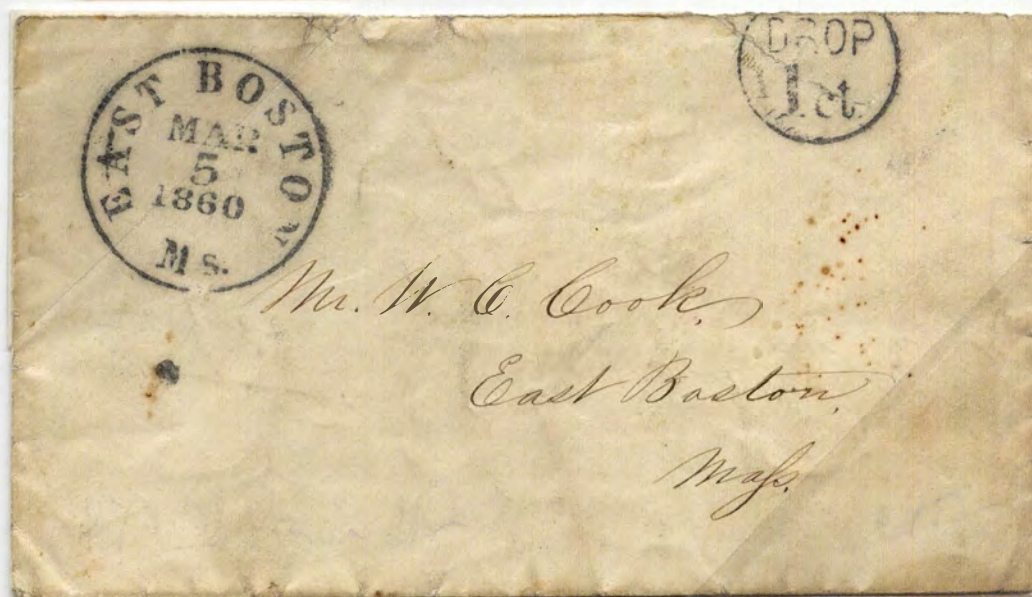 EAST BOSTON
MAR
5
1860
Ms.
DROP
1 ct.
Mr. W. C. Cook.
East Boston,
Mass.